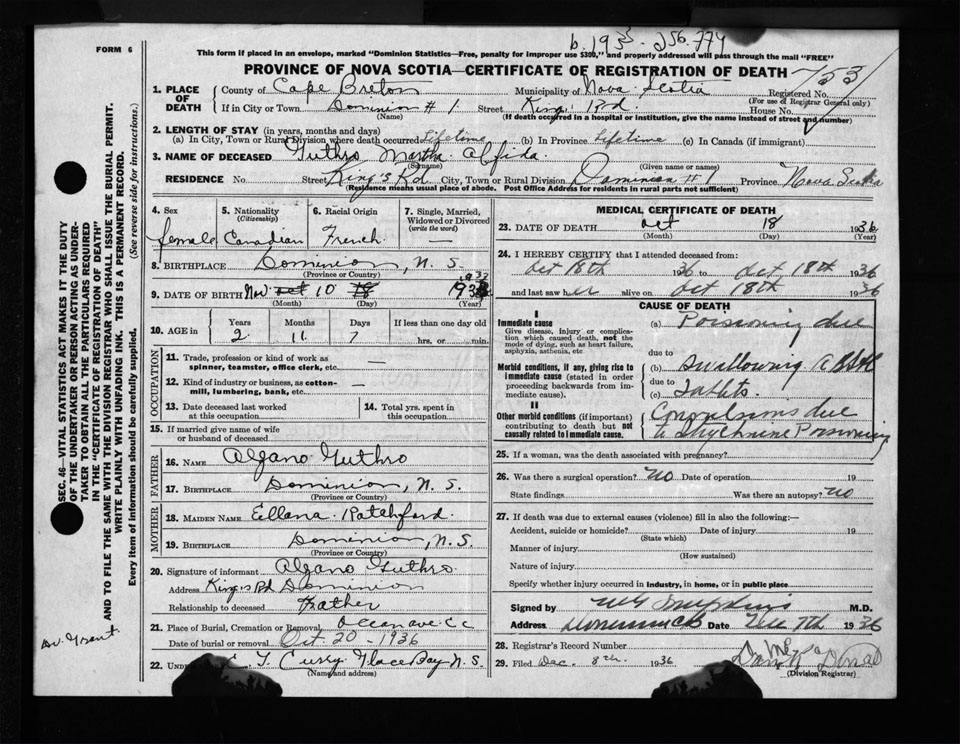 b. 1933-256-774
FORM 6
This form if placed in an envelope, marked "Dominion Statistics—Free, penalty for improper use $300," and properly addressed will pass through the mail "FREE"
PROVINCE OF NOVA SCOTIA—CERTIFICATE OF REGISTRATION OF DEATH
1. PLACE OF DEATH
County of Cape Breton Municipality of Nova Scotia Registered No.
(For use of Registrar General only)
If in City or Town Dominion # 1 Street King's Rd. House No.
(Name) (If death occurred in a hospital or institution, give the name instead of street and number)
2. LENGTH OF STAY (in years, months and days)
(a) In City, Town or Rural Division where death occurred Lifetime (b) In Province Lifetime (c) In Canada (if immigrant)
3. NAME OF DECEASED Guthro Martha Alfida.
(Surname) (Given name or names)
RESIDENCE No. Street King's Rd City, Town or Rural Division Dominion # 1 Province Nova Scotia
(Residence means usual place of abode. Post Office Address for residents in rural parts not sufficient)
4. Sex
female
5. Nationality
(Citizenship)
Canadian
6. Racial Origin
French
7. Single, Married, Widowed or Divorced
(write the word)
—
8. BIRTHPLACE Dominion, N. S.
(Province or Country)
9. DATE OF BIRTH Nov 10 1933
(Month) (Day) (Year)
10. AGE in
Years Months Days If less than one day old
2 11 7 hrs. or min.
OCCUPATION
11. Trade, profession or kind of work as spinner, teamster, office clerk, etc. —
12. Kind of industry or business, as cotton-mill, lumbering, bank, etc. —
13. Date deceased last worked at this occupation
14. Total yrs. spent in this occupation
15. If married give name of wife or husband of deceased
FATHER
16. NAME Algano Guthro
17. BIRTHPLACE Dominion, N. S.
(Province or Country)
MOTHER
18. MAIDEN NAME Ellana Ratchford
19. BIRTHPLACE Dominion, N. S.
(Province or Country)
20. Signature of informant Algano Guthro.
Address King's Rd Dominion
Relationship to deceased Father
21. Place of Burial, Cremation or Removal Ocean ave. CC
Date of burial or removal Oct 20 - 1936
Curry Glace Bay N. S.
(Name and address)
MEDICAL CERTIFICATE OF DEATH
23. DATE OF DEATH Oct 18 1936
(Month) (Day) (Year)
24. I HEREBY CERTIFY that I attended deceased from:
Oct 18th 1936 to Oct 18th 1936
and last saw her alive on Oct 18th 1936
CAUSE OF DEATH
I
Immediate cause
Give disease, injury or complication which caused death, not the mode of dying, such as heart failure, asphyxia, asthenia, etc
(a) Poisoning due
due to
Morbid conditions, if any, giving rise to immediate cause (stated in order proceeding backwards from immediate cause).
(b) Swallowing A B S &
due to
(c) Tablets.
II
Other morbid conditions (if important) contributing to death but not causally related to immediate cause.
Convulsions due
to Strychnine Poisoning
25. If a woman, was the death associated with pregnancy?
26. Was there a surgical operation? no Date of operation 19
State findings Was there an autopsy? no
27. If death was due to external causes (violence) fill in also the following:—
Accident, suicide or homicide? Date of injury 19
(State which)
Manner of injury
(How sustained)
Nature of injury
Specify whether injury occurred in industry, in home, or in public place
Signed by M.D.
Address Date 7th 1936
28. Registrar's Record Number
29. Filed Dec. 8th 1936
(Division Registrar)
SEC. 46—VITAL STATISTICS ACT MAKES IT THE DUTY
OF THE UNDERTAKER OR PERSON ACTING AS UNDER-
TAKER TO OBTAIN ALL THE PARTICULARS REQUIRED
IN THE "CERTIFICATE OF REGISTRATION OF DEATH"
AND TO FILE THE SAME WITH THE DIVISION REGISTRAR WHO SHALL ISSUE THE BURIAL PERMIT.
WRITE PLAINLY WITH UNFADING INK. THIS IS A PERMANENT RECORD.
Every item of information should be carefully supplied.
(See reverse side for instructions.)
Grant